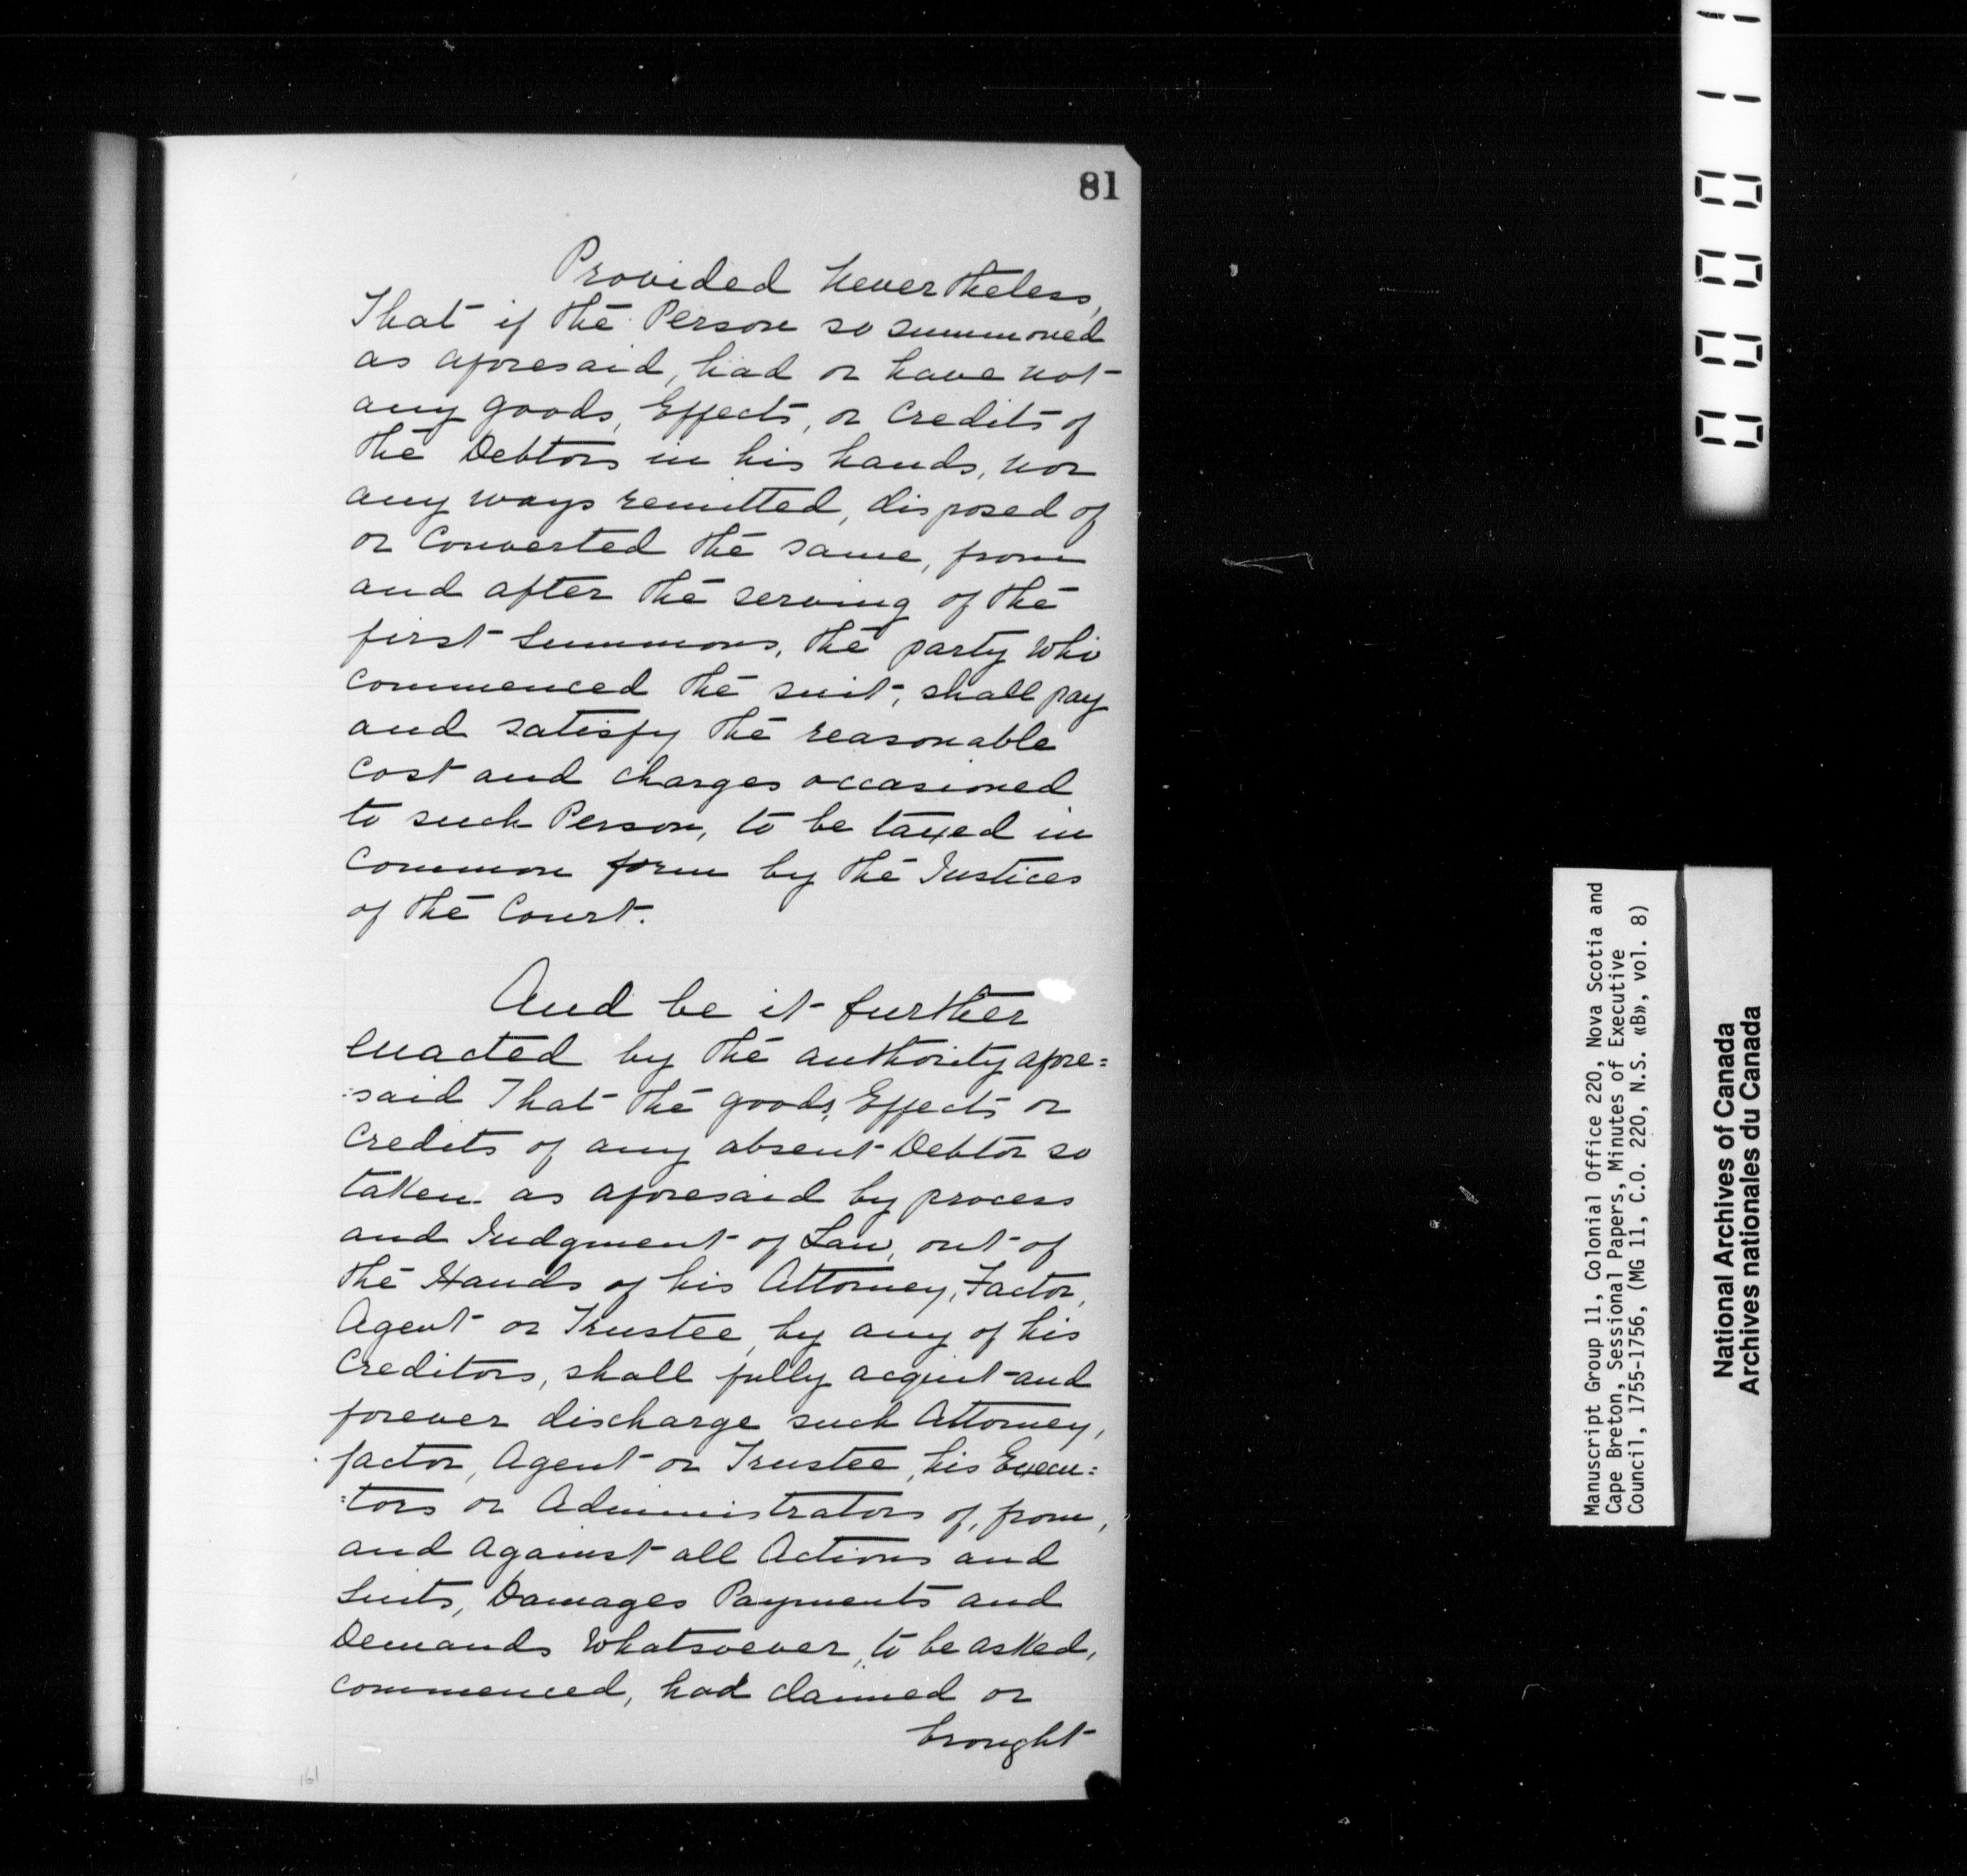 81
Provided Nevertheless,
That if the Person so summoned
as aforesaid, had or have not
any goods, Effects, or Credits of
the Debtors in his hands, nor
any ways remitted, disposed of
or Converted the same, from
and after the serving of the
first Summons, the party who
commenced the suit, shall pay
and satisfy the reasonable
Cost and charges occasioned
to such Person, to be taxed in
Common form by the Justices
of the Court.
And be it further
Enacted by the authority afore=
=said That the goods, Effects or
Credits of any absent Debtor so
taken as aforesaid by process
and Judgment of Law, out of
the Hands of his Attorney, Factor,
Agent or Trustee, by any of his
Creditors, shall fully acquit and
forever discharge such Attorney,
factor, Agent or Trustee, his Execu=
=tors or Administrators of, from,
and against all Actions and
Suits, Damages Payments and
Demands whatsoever, to be asked,
commenced, had claimed or
brought
161
000011
Manuscript Group 11, Colonial Office 220, Nova Scotia and
Cape Breton, Sessional Papers, Minutes of Executive
Council, 1755-1756, (MG 11, C.O. 220, N.S. «B», vol. 8)
National Archives of Canada
Archives nationales du Canada